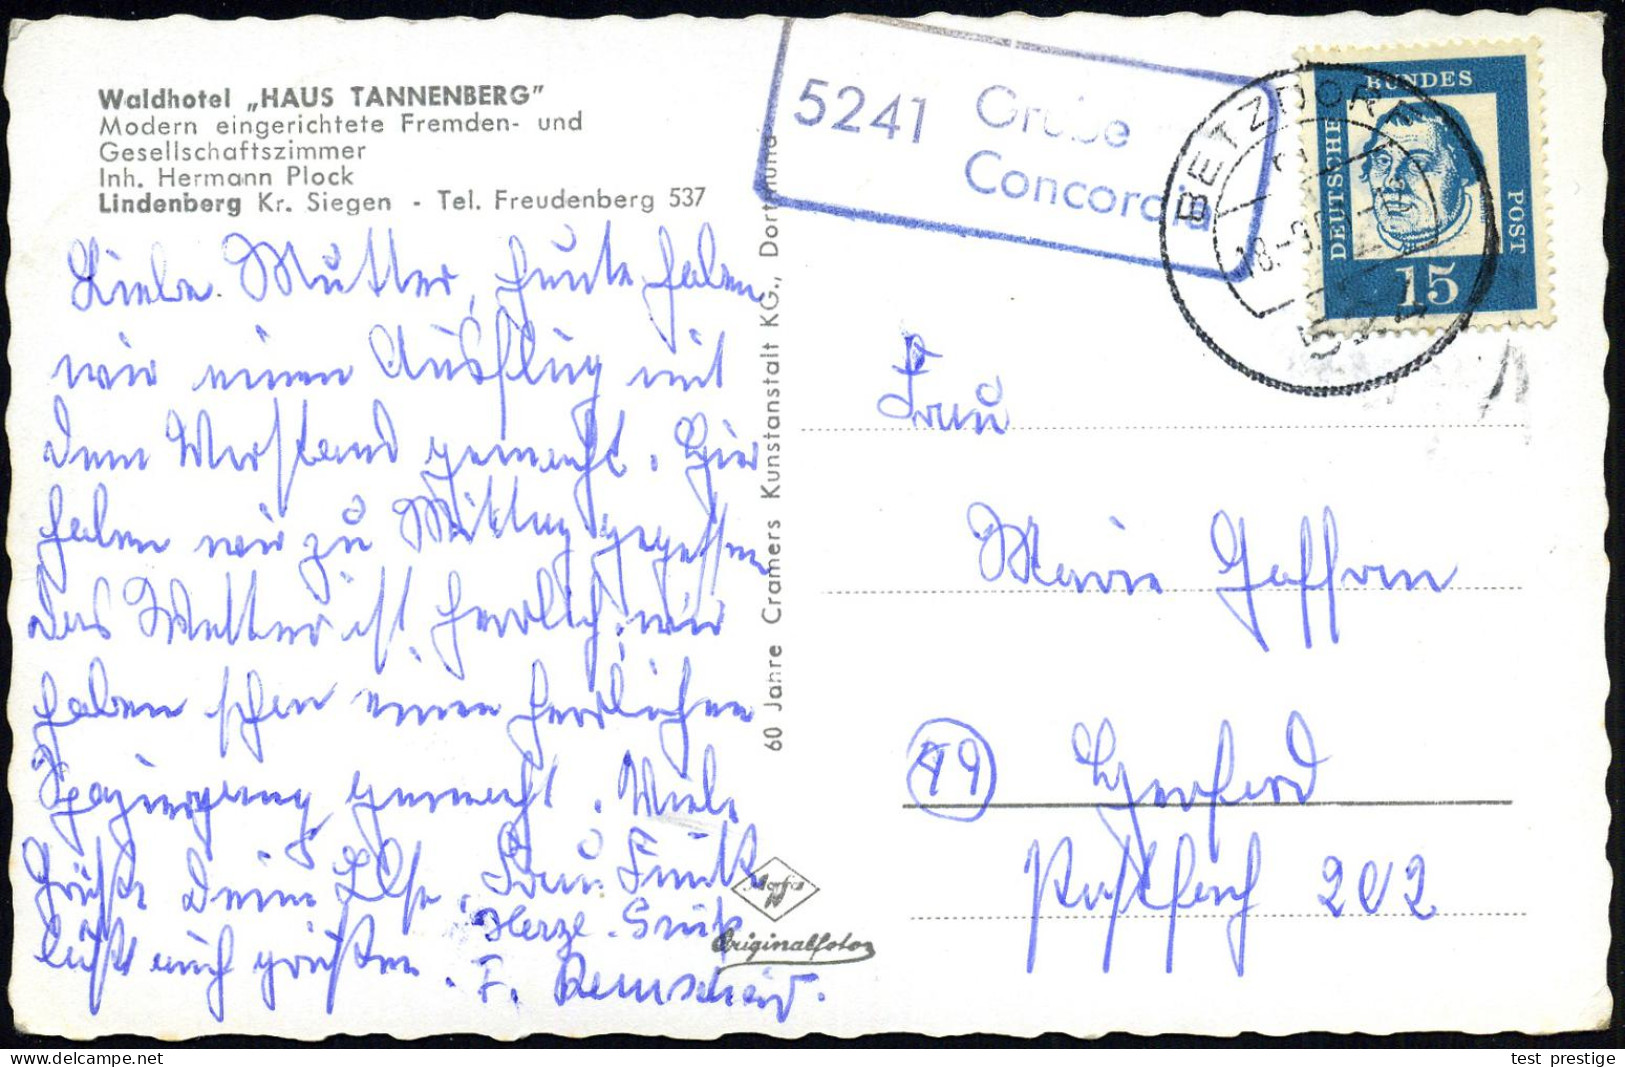 Waldhotel „HAUS TANNENBERG"
Modern eingerichtete Fremden- und
Gesellschaftszimmer
Inh. Hermann Plock
Lindenberg Kr. Siegen - Tel. Freudenberg 537
Liebe Mutter, heute haben
wir einen Ausflug mit
dem Vorstand gemacht. Hier
haben wir zu Mittag gegessen
das Wetter ist herrlich, wir
haben schon einen herrlichen
Spaziergang gemacht. Viele
Grüße deine Else. Frau Funke
läßt auch grüßen.
Herzl. Gruß
F. Remscheid.
60 Jahre Cramers Kunstanstalt KG., Dortmund
Agfa
Originalfoto
5241 Grube
Concordia
BETZDORF
DEUTSCHE
BUNDES
POST
15
Frau
Marie Gaffron
49 Herford
Postfach 202
test prestige